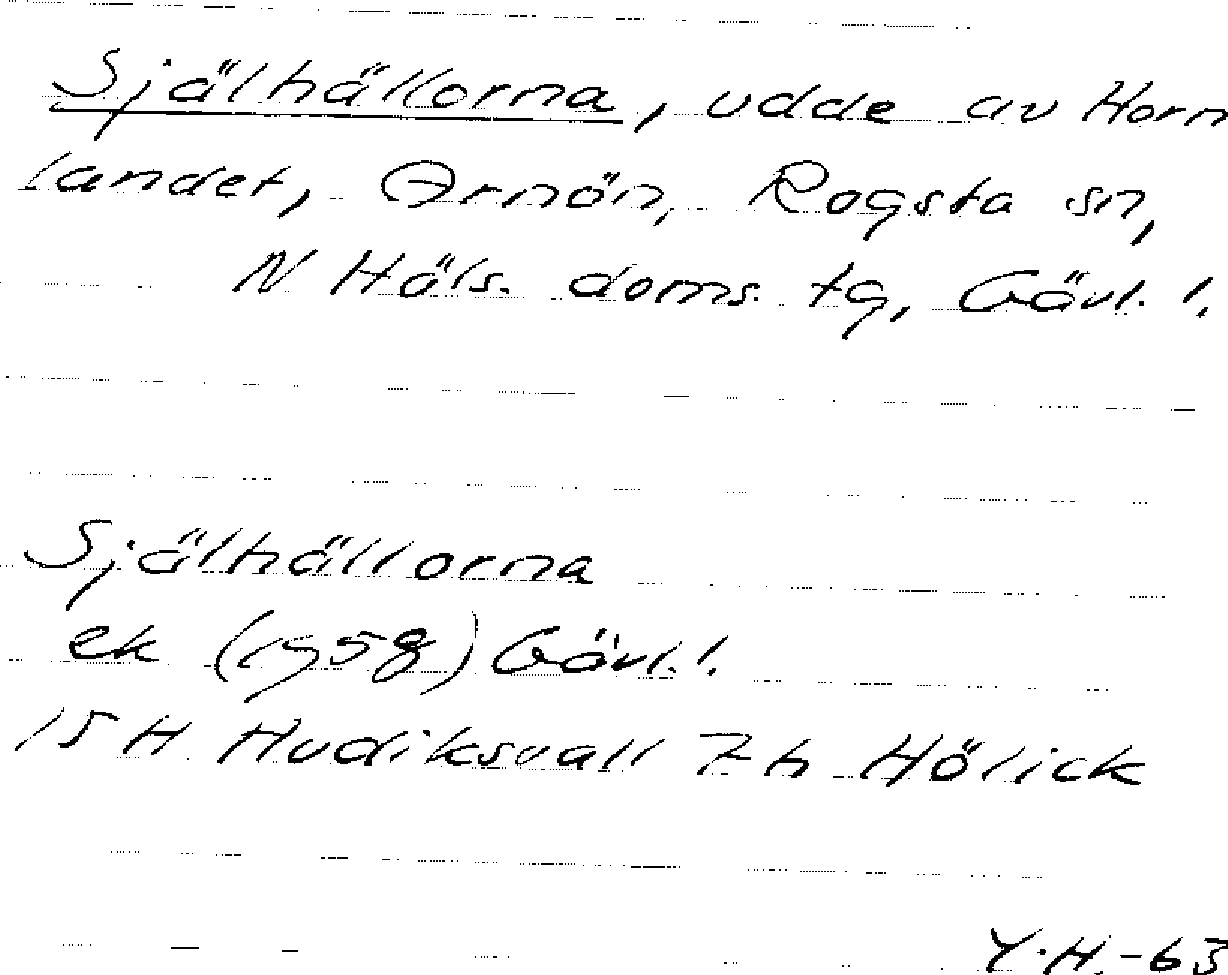 Själhällorna, udde av Horn
landet, Arnön, Rogsta sn,
N Häls. doms. tg, Gävl. l.
Själhällorna
ek (1958) Gävl. l.
15 H Hudiksvall 7h Hölick
Y.H.-63